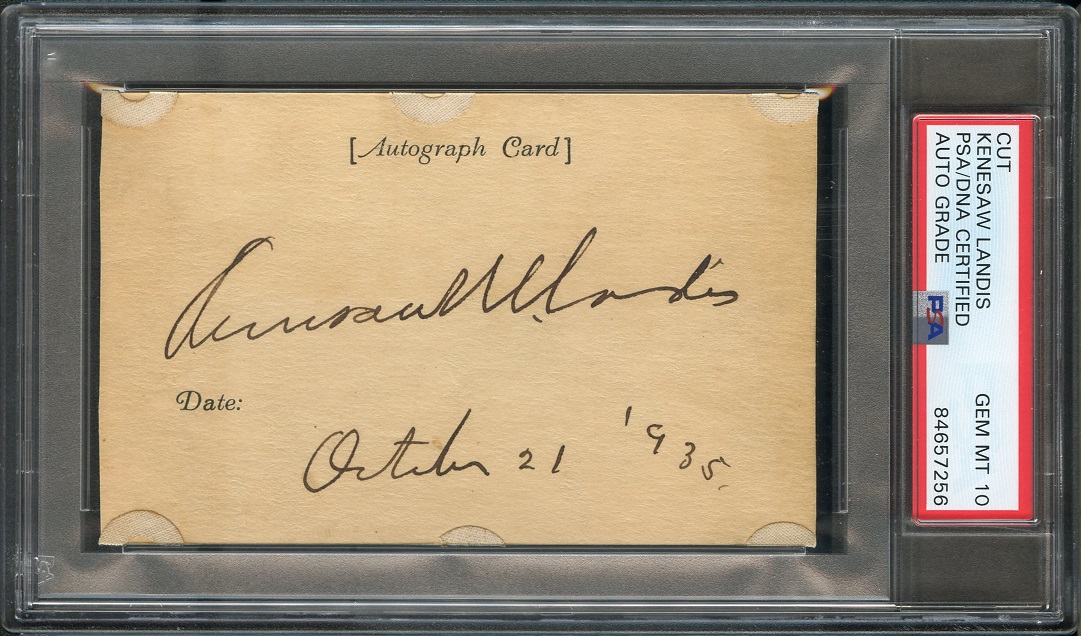 [Autograph Card]
Kenesaw M. Landis
Date:
October 21 1935.
CUT
KENESAW LANDIS
PSA/DNA CERTIFIED
AUTO GRADE
GEM MT 10
84657256
PSA